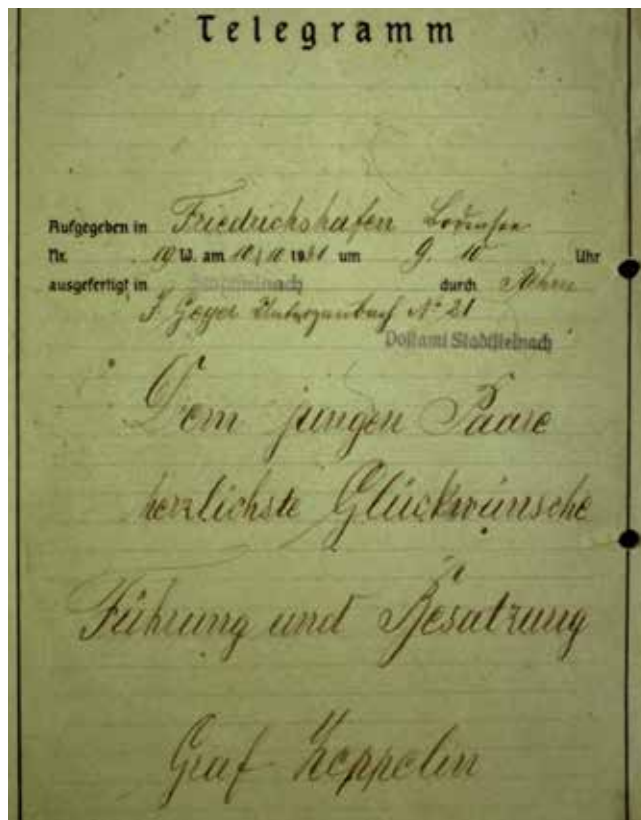 Telegramm
Aufgegeben in Friedrichshafen Bodensee
Nr. 19 W. am 10/10 19 um 9. 10 Uhr
ausgefertigt in Stadtsteinach durch
J. Geyer Unterzaubach Nº 21
Postamt Stadtsteinach
Dem jungen Paare
herzlichste Glückwünsche
Führung und Besatzung
Graf Zeppelin